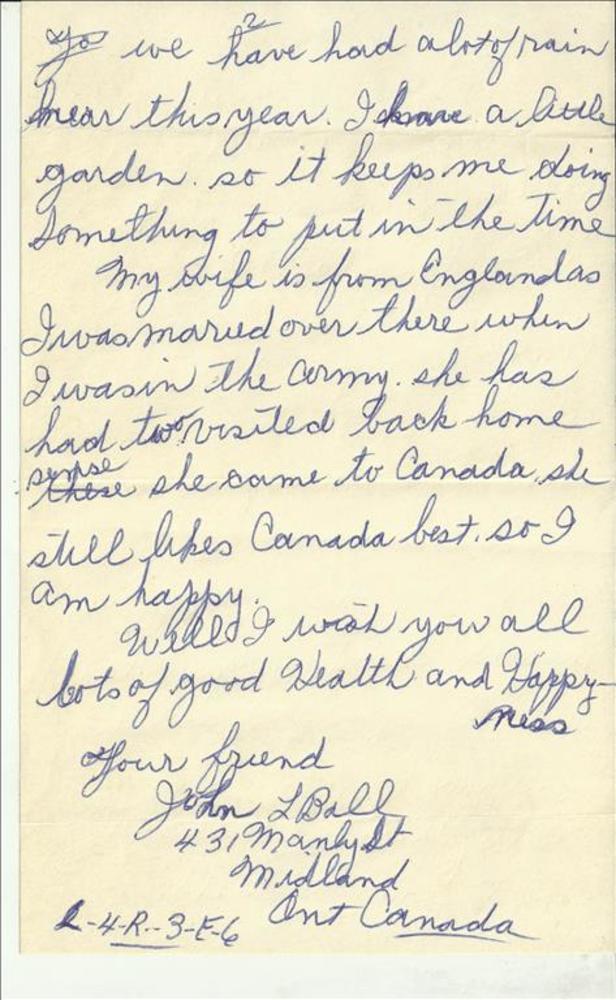 2
we have had a lot of rain
hear this year. I have a little
garden. so it keeps me doing
something to put in the time
My wife is from England as
I was maried over there when
I was in the army. she has
had two visited back home
sense
these she came to Canada, she
still likes Canada best. so I
am happy.
Well I wish you all
lots of good Health and Happy-
ness
Your friend
John L Ball
431 Manly St
Midland
Ont Canada
L-4-R--3-E-6